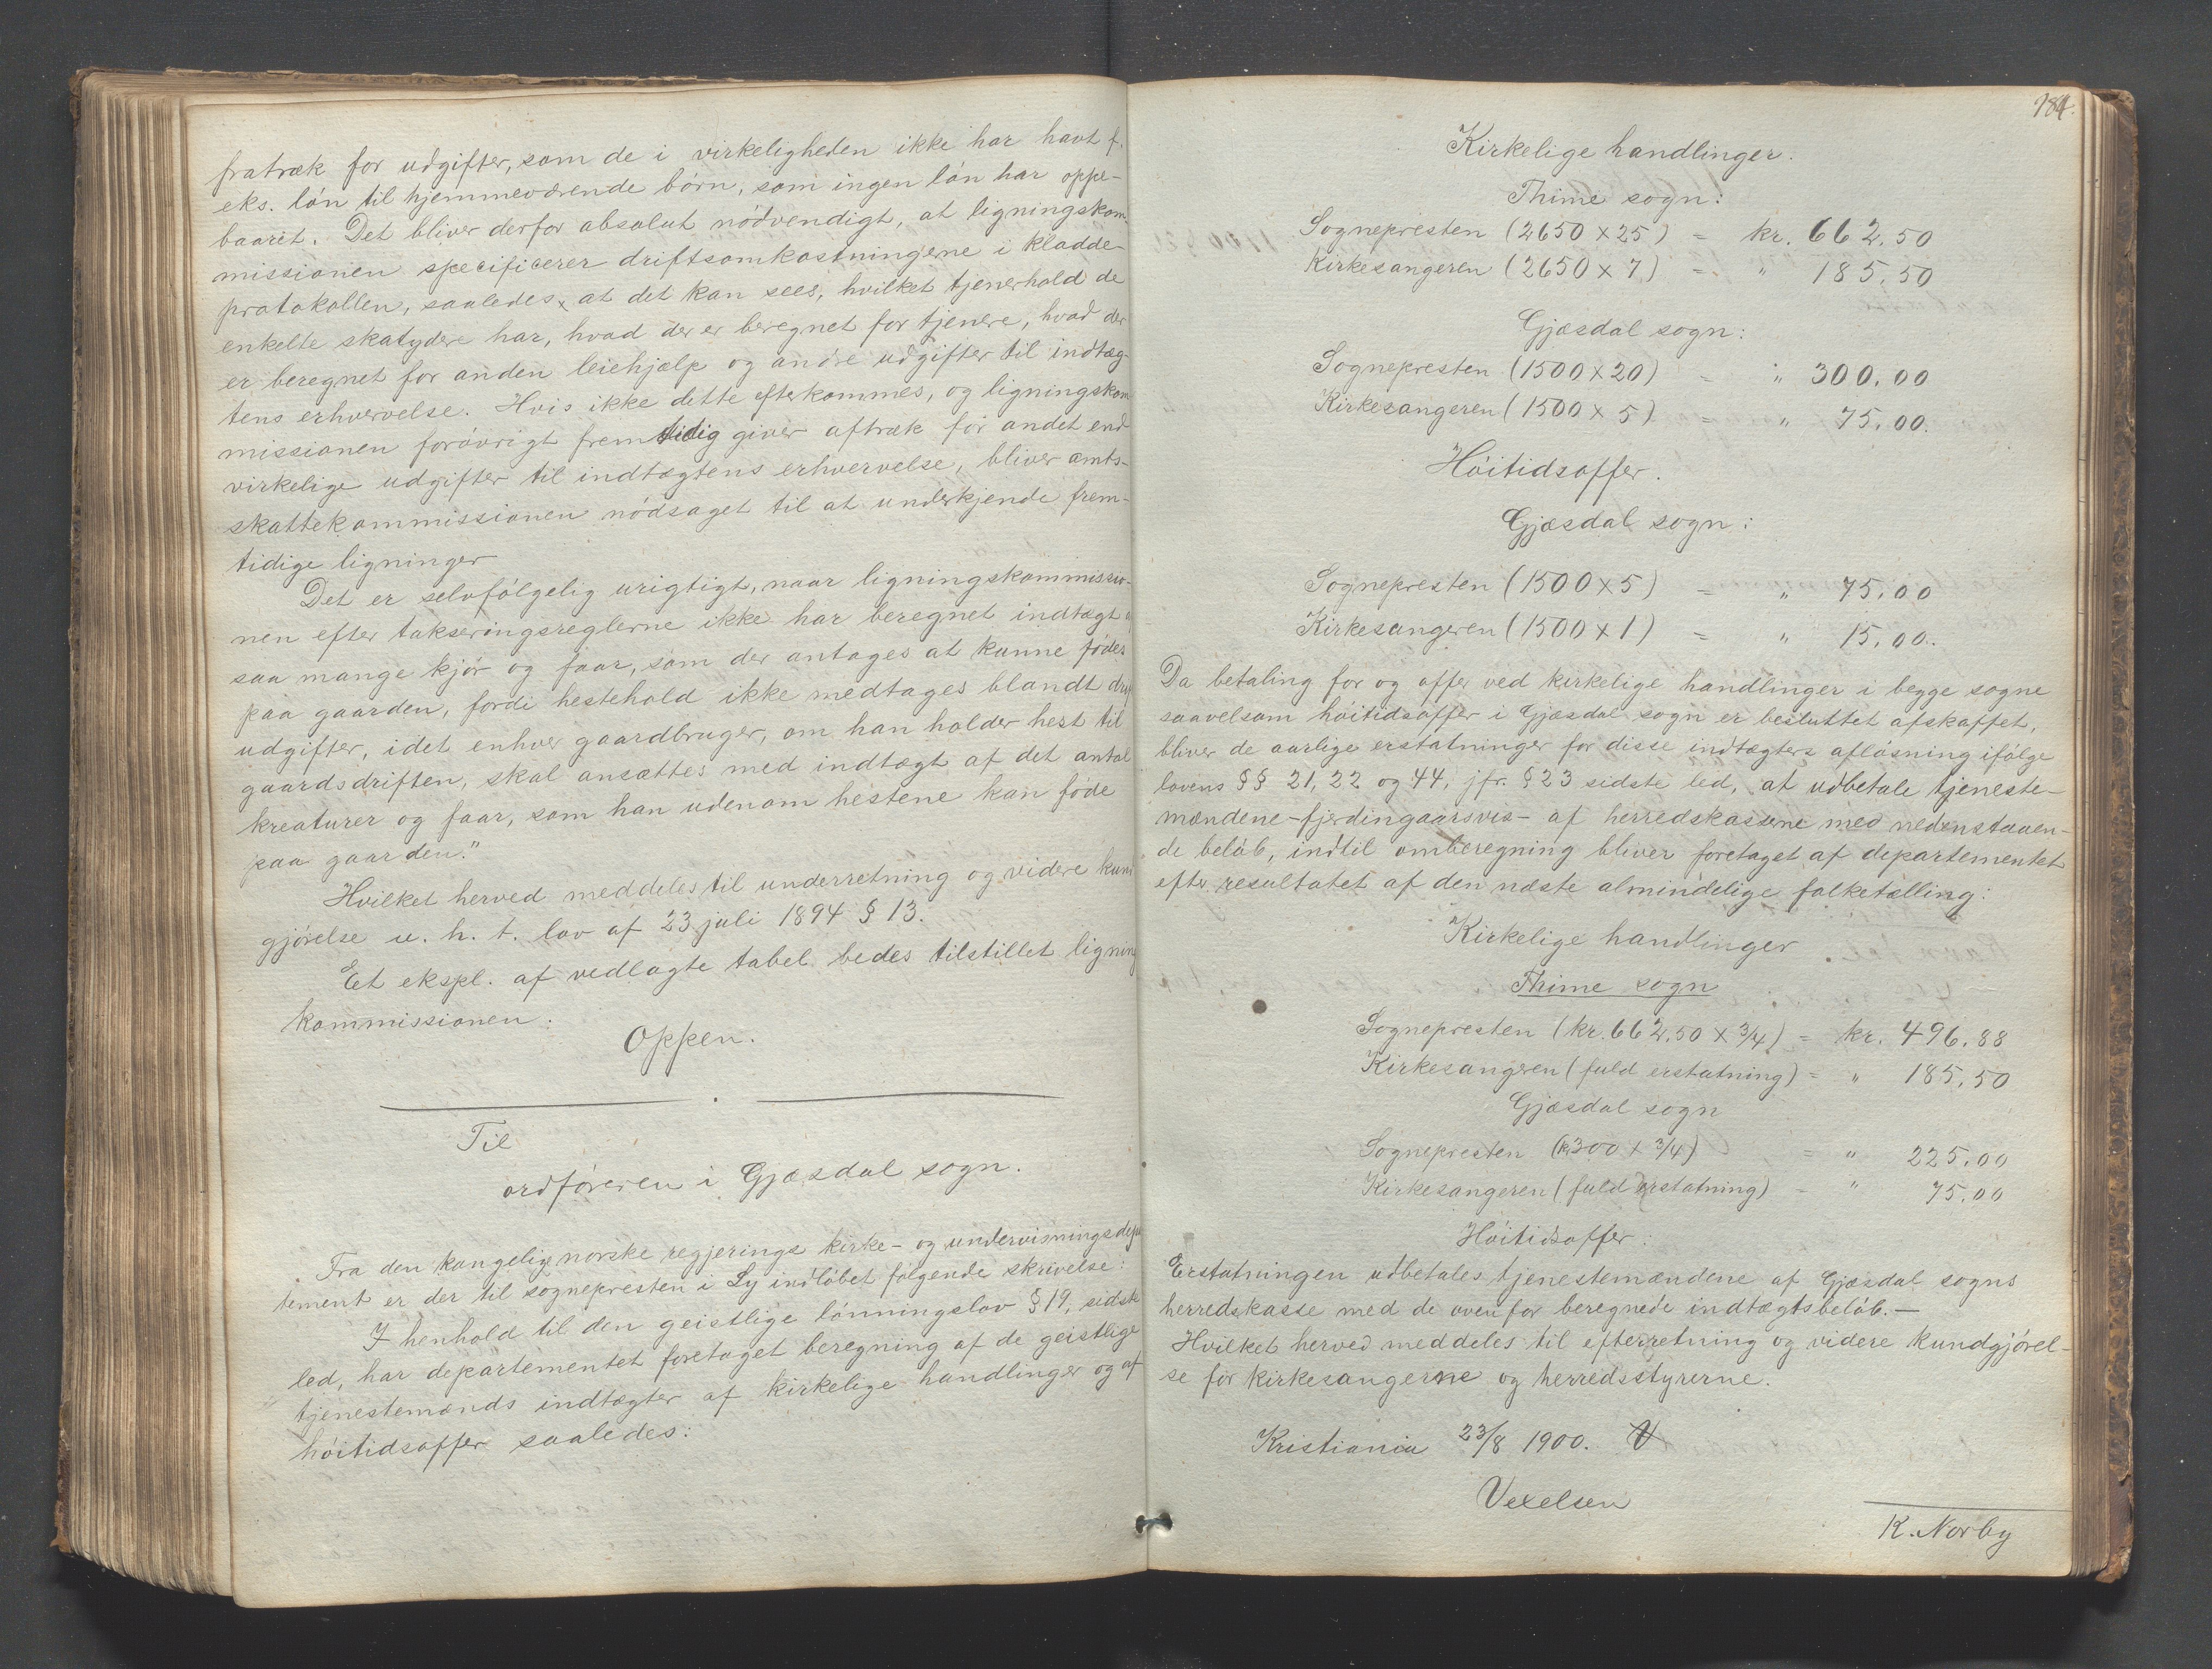 fratræk for udgifter, som de i virkeligheden ikke har havt f.
eks. lón til hjemmeværende bórn, som ingen lón har oppe-
baaret. Det bliver derfor absolut nódvendigt, at ligningskom-
missionen specificerer driftsomkostningerne i kladde-
protokollen, saaledes, at det kan sees, hvilket tjenerhold de
enkelte skatydere har, hvad der er beregnet for tjenere, hvad der
er beregnet for anden leiehjælp og andre udgifter til indtæg-
tens erhvervelse. Hvis ikke dette efterkommes, og ligningskom
missionen foróvrigt fremtidig giver aftræk for andet end
virkelige udgifter til indtægtens erhvervelse, bliver amts-
skattekommissionen nódsaget til at underkjende frem-
tidige ligninger
Det er selvfólgelig urigtigt, naar ligningskommissio-
nen efter takseringsreglerne ikke har beregnet indtægt
saa mange kjór og faar, som der antages at kunne fódes
paa gaarden, fordi hestehold ikke medtages blandt
udgifter, idet enhver gaardbruger, om han holder hest til
gaardsdriften, skal ansættes med indtægt af det antal
kreaturer og faar, som han udenom hestene kan fóde
paa gaarden."
Hvilket herved meddeles til underretning og videre kund
gjórelse u. h. t. lov af 23 juli 1894 § 13.
Et ekspl. af vedlagte tabel bedes tilstillet lignings
kommissionen.
Oppen.
Til
ordfóreren i Gjæsdal sogn.
Fra den kongelig norske regjerings kirke- og undervisningsdepar
tement er der til sognepresten i Ly indlóbet fólgende skrivelse:
I henhold til den geistlige lónningslov § 19, sidste
led, har departementet foretaget beregning af de geistlige
tjenestemænds indtægter af kirkelige handlinger og af
hóitidsoffer saaledes:
184.
Kirkelige handlinger.
Thime sogn:
Sognepresten (2650 x 25) = kr. 662.50
Kirkesangeren (2650 x 7) = " 185.50
Gjæsdal sogn:
Sognepresten (1500 x 20) = " 300.00
Kirkesangeren (1500 x 5) = " 75.00.
Hóitidsoffer.
Gjæsdal sogn:
Sognepresten (1500 x 5) = " 75.00
Kirkesangeren (1500 x 1) = " 15.00.
Da betaling for og offer ved kirkelige handlinger i begge sogne
saavelsom hóitidsoffer i Gjæsdal sogn er besluttet afskaffet,
bliver de aarlige erstatninger for disse indtægters aflósning ifólge
lovens §§ 21, 22 og 44, jfr. § 23 sidste led, at udbetale tjeneste-
mændene - fjerdingaarsvis - af herredskasserne med nedenstaaen-
de belób, indtil omberegning bliver foretaget af departementet
efter resultatet af den næste almindelige folketælling:
Kirkelige handlinger
Thime sogn
Sognepresten (kr. 662.50 x 3/4) = kr. 496.88
Kirkesangeren (fuld erstatning) = " 185.50
Gjæsdal sogn
Sognepresten (k300 x 3/4) = " 225.00
Kirkesangeren (fuld erstatning) = " 75.00
Hóitidsoffer:
Erstatningen udbetales tjenestemændene af Gjæsdal sogns
herredskasse med de ovenfor beregnede indtægtsbelób. -
Hvilket herved meddeles til efterretning og videre kundgjórel-
se for kirkesangerne og herredsstyrerne.
Kristiania 23/8 1900. V
Vexelsen
K. Norby